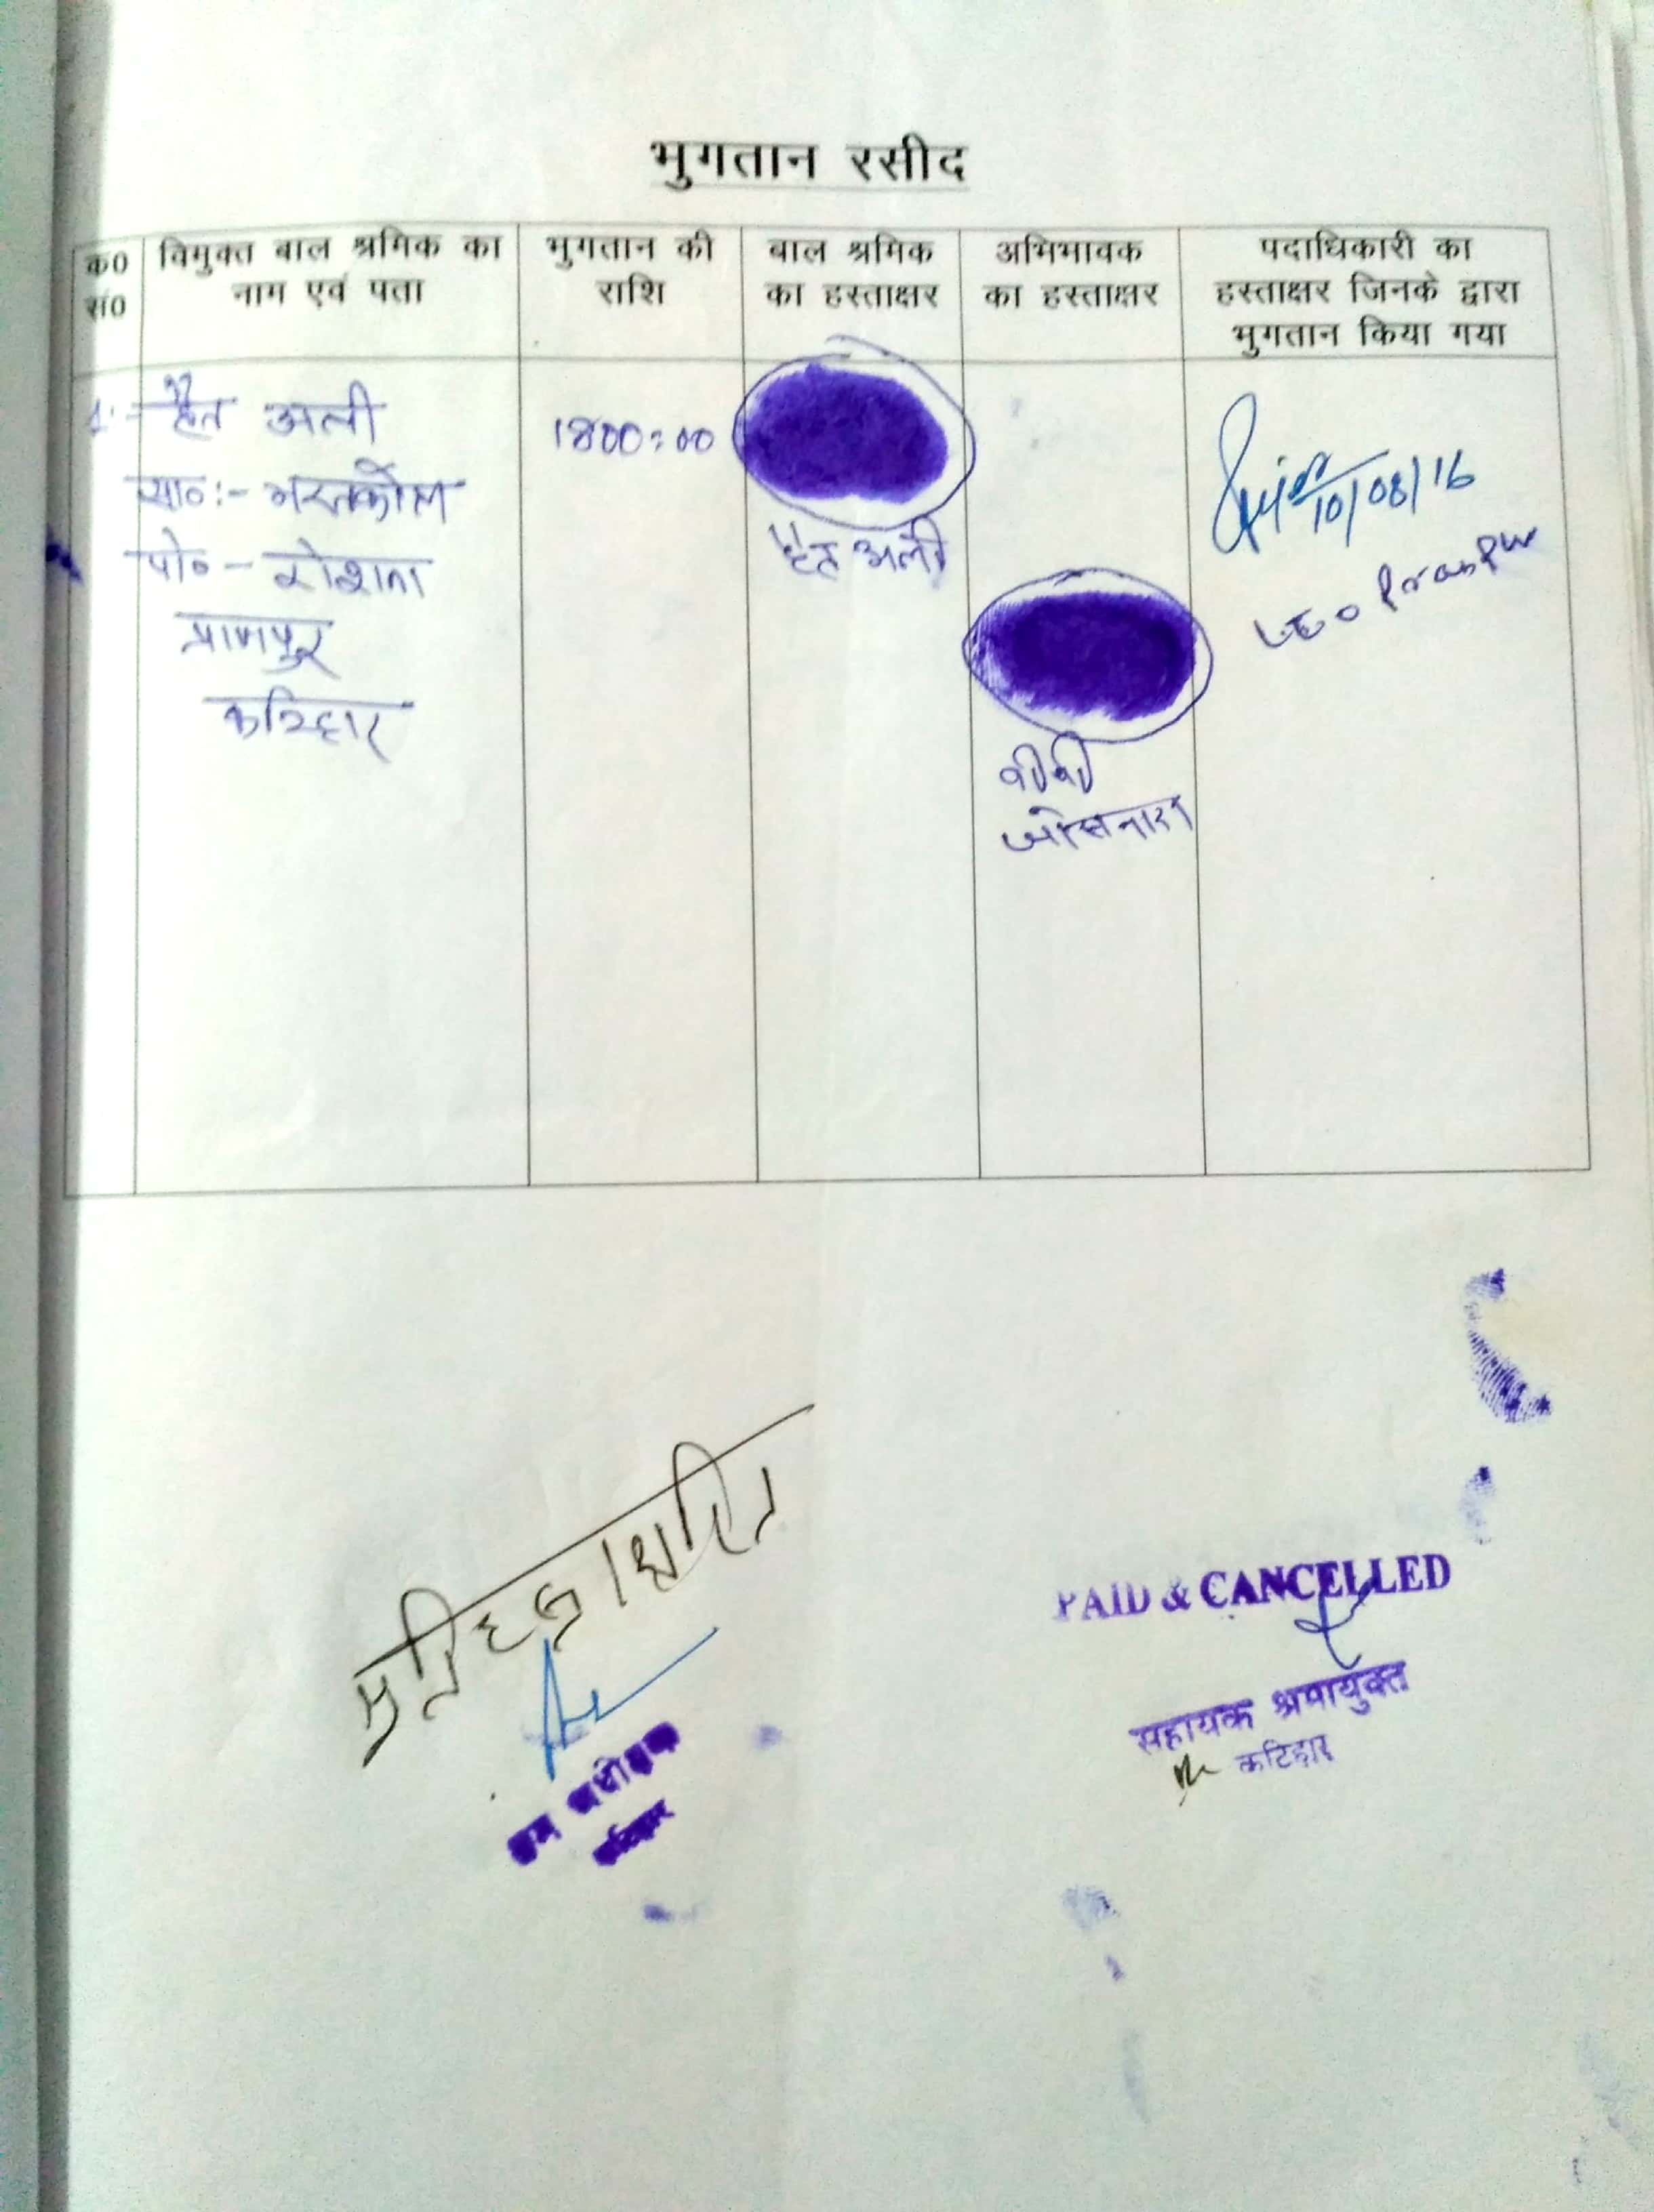 भुगतान रसीद
क0 सं0
विमुक्त बाल श्रमिक का नाम एवं पता
भुगतान की राशि
बाल श्रमिक का हस्ताक्षर
अभिभावक का हस्ताक्षर
पदाधिकारी का हस्ताक्षर जिनके द्वारा भुगतान किया गया
1:- हैत अली
1800=00
सा०:-
पो० - रोशना
प्राणपुर
कटिहार
हैत अली
बीबी
जोसनारा
10/08/16
LEO Pranpur
PAID & CANCELLED
सहायक श्रमायुक्त
कटिहार